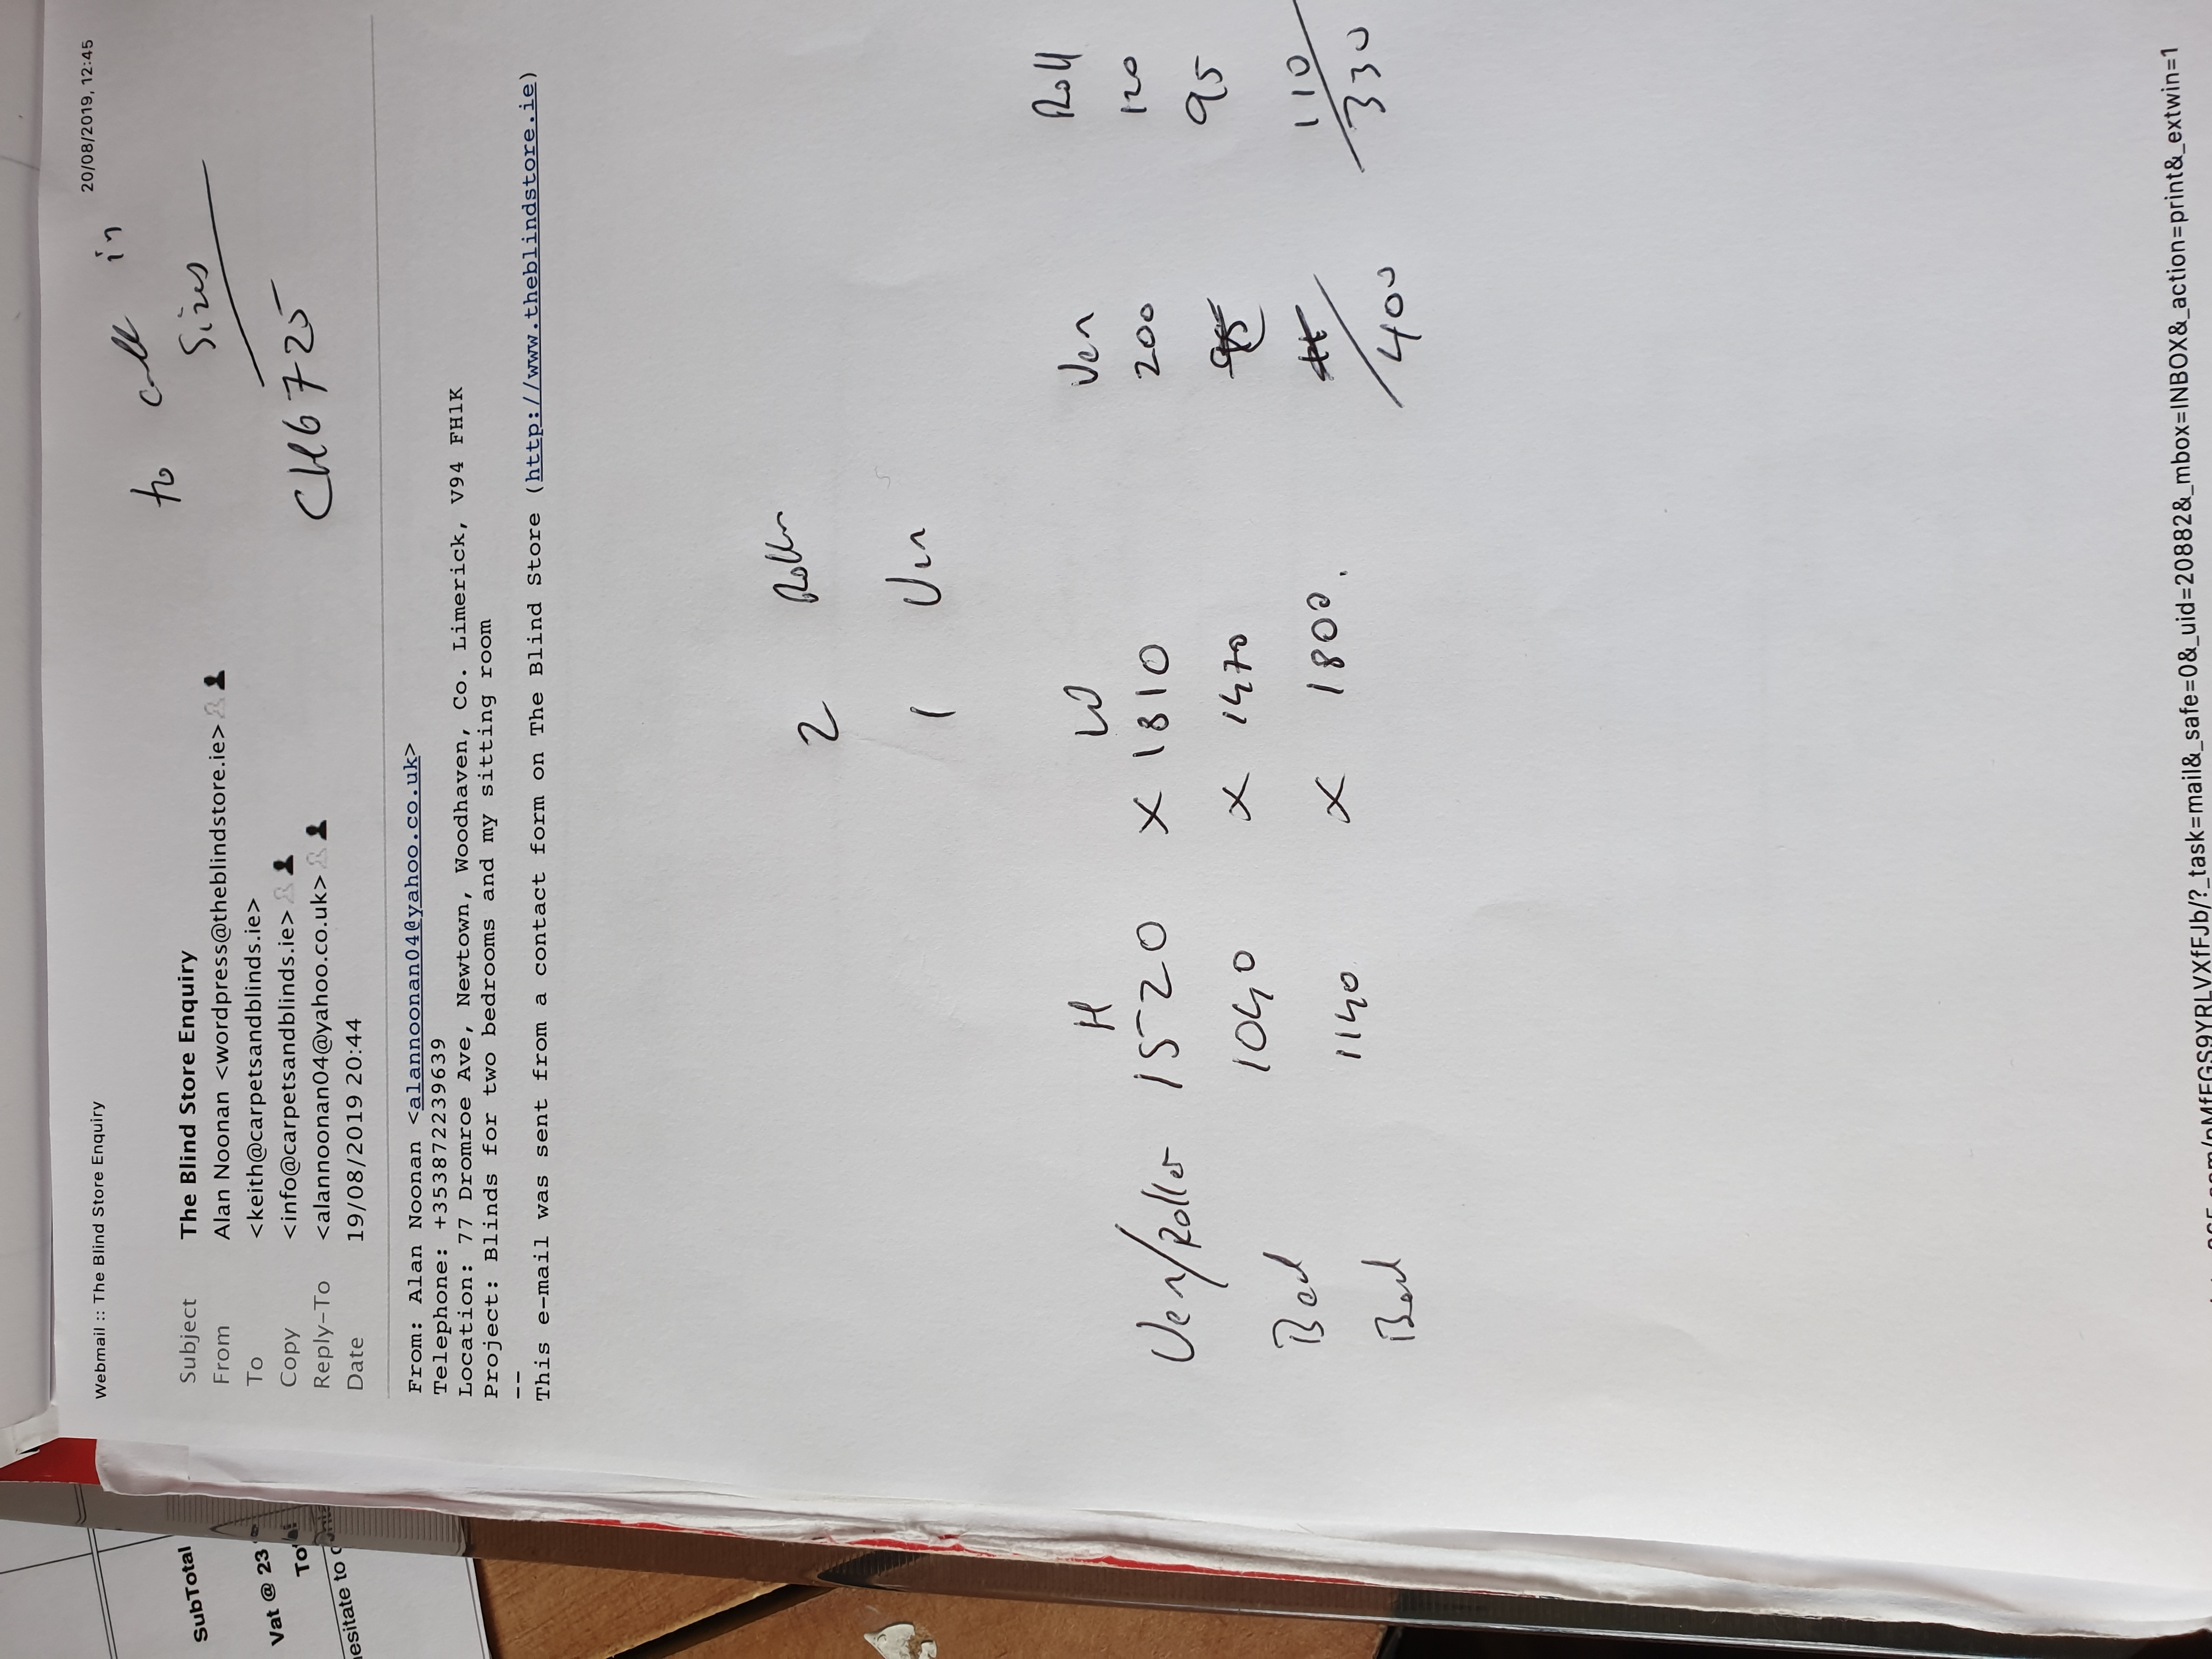 Webmail :: The Blind Store Enquiry 20/08/2019, 12:45
to call in
Sizes
Subject The Blind Store Enquiry
From Alan Noonan <wordpress@theblindstore.ie>
To <keith@carpetsandblinds.ie>
Copy <info@carpetsandblinds.ie>
Reply-To <alannoonan04@yahoo.co.uk>
Date 19/08/2019 20:44
6725
From: Alan Noonan <alannoonan04@yahoo.co.uk>
Telephone: +353872239639
Location: 77 Dromroe Ave, Newtown, Woodhaven, Co. Limerick, V94 FH1K
Project: Blinds for two bedrooms and my sitting room
--
This e-mail was sent from a contact form on The Blind Store (http://www.theblindstore.ie)
2 Roller
1 Ven
H W Ven Roll
Ven/Roller 1520 X 1810 200 120
Bed 1040 X 1470 95
Bed 1140 X 1800. 110
400 330
/?_task=mail&_safe=0&_uid=20882&_mbox=INBOX&_action=print&_extwin=1
SubTotal
Vat @ 23
To
hesitate to